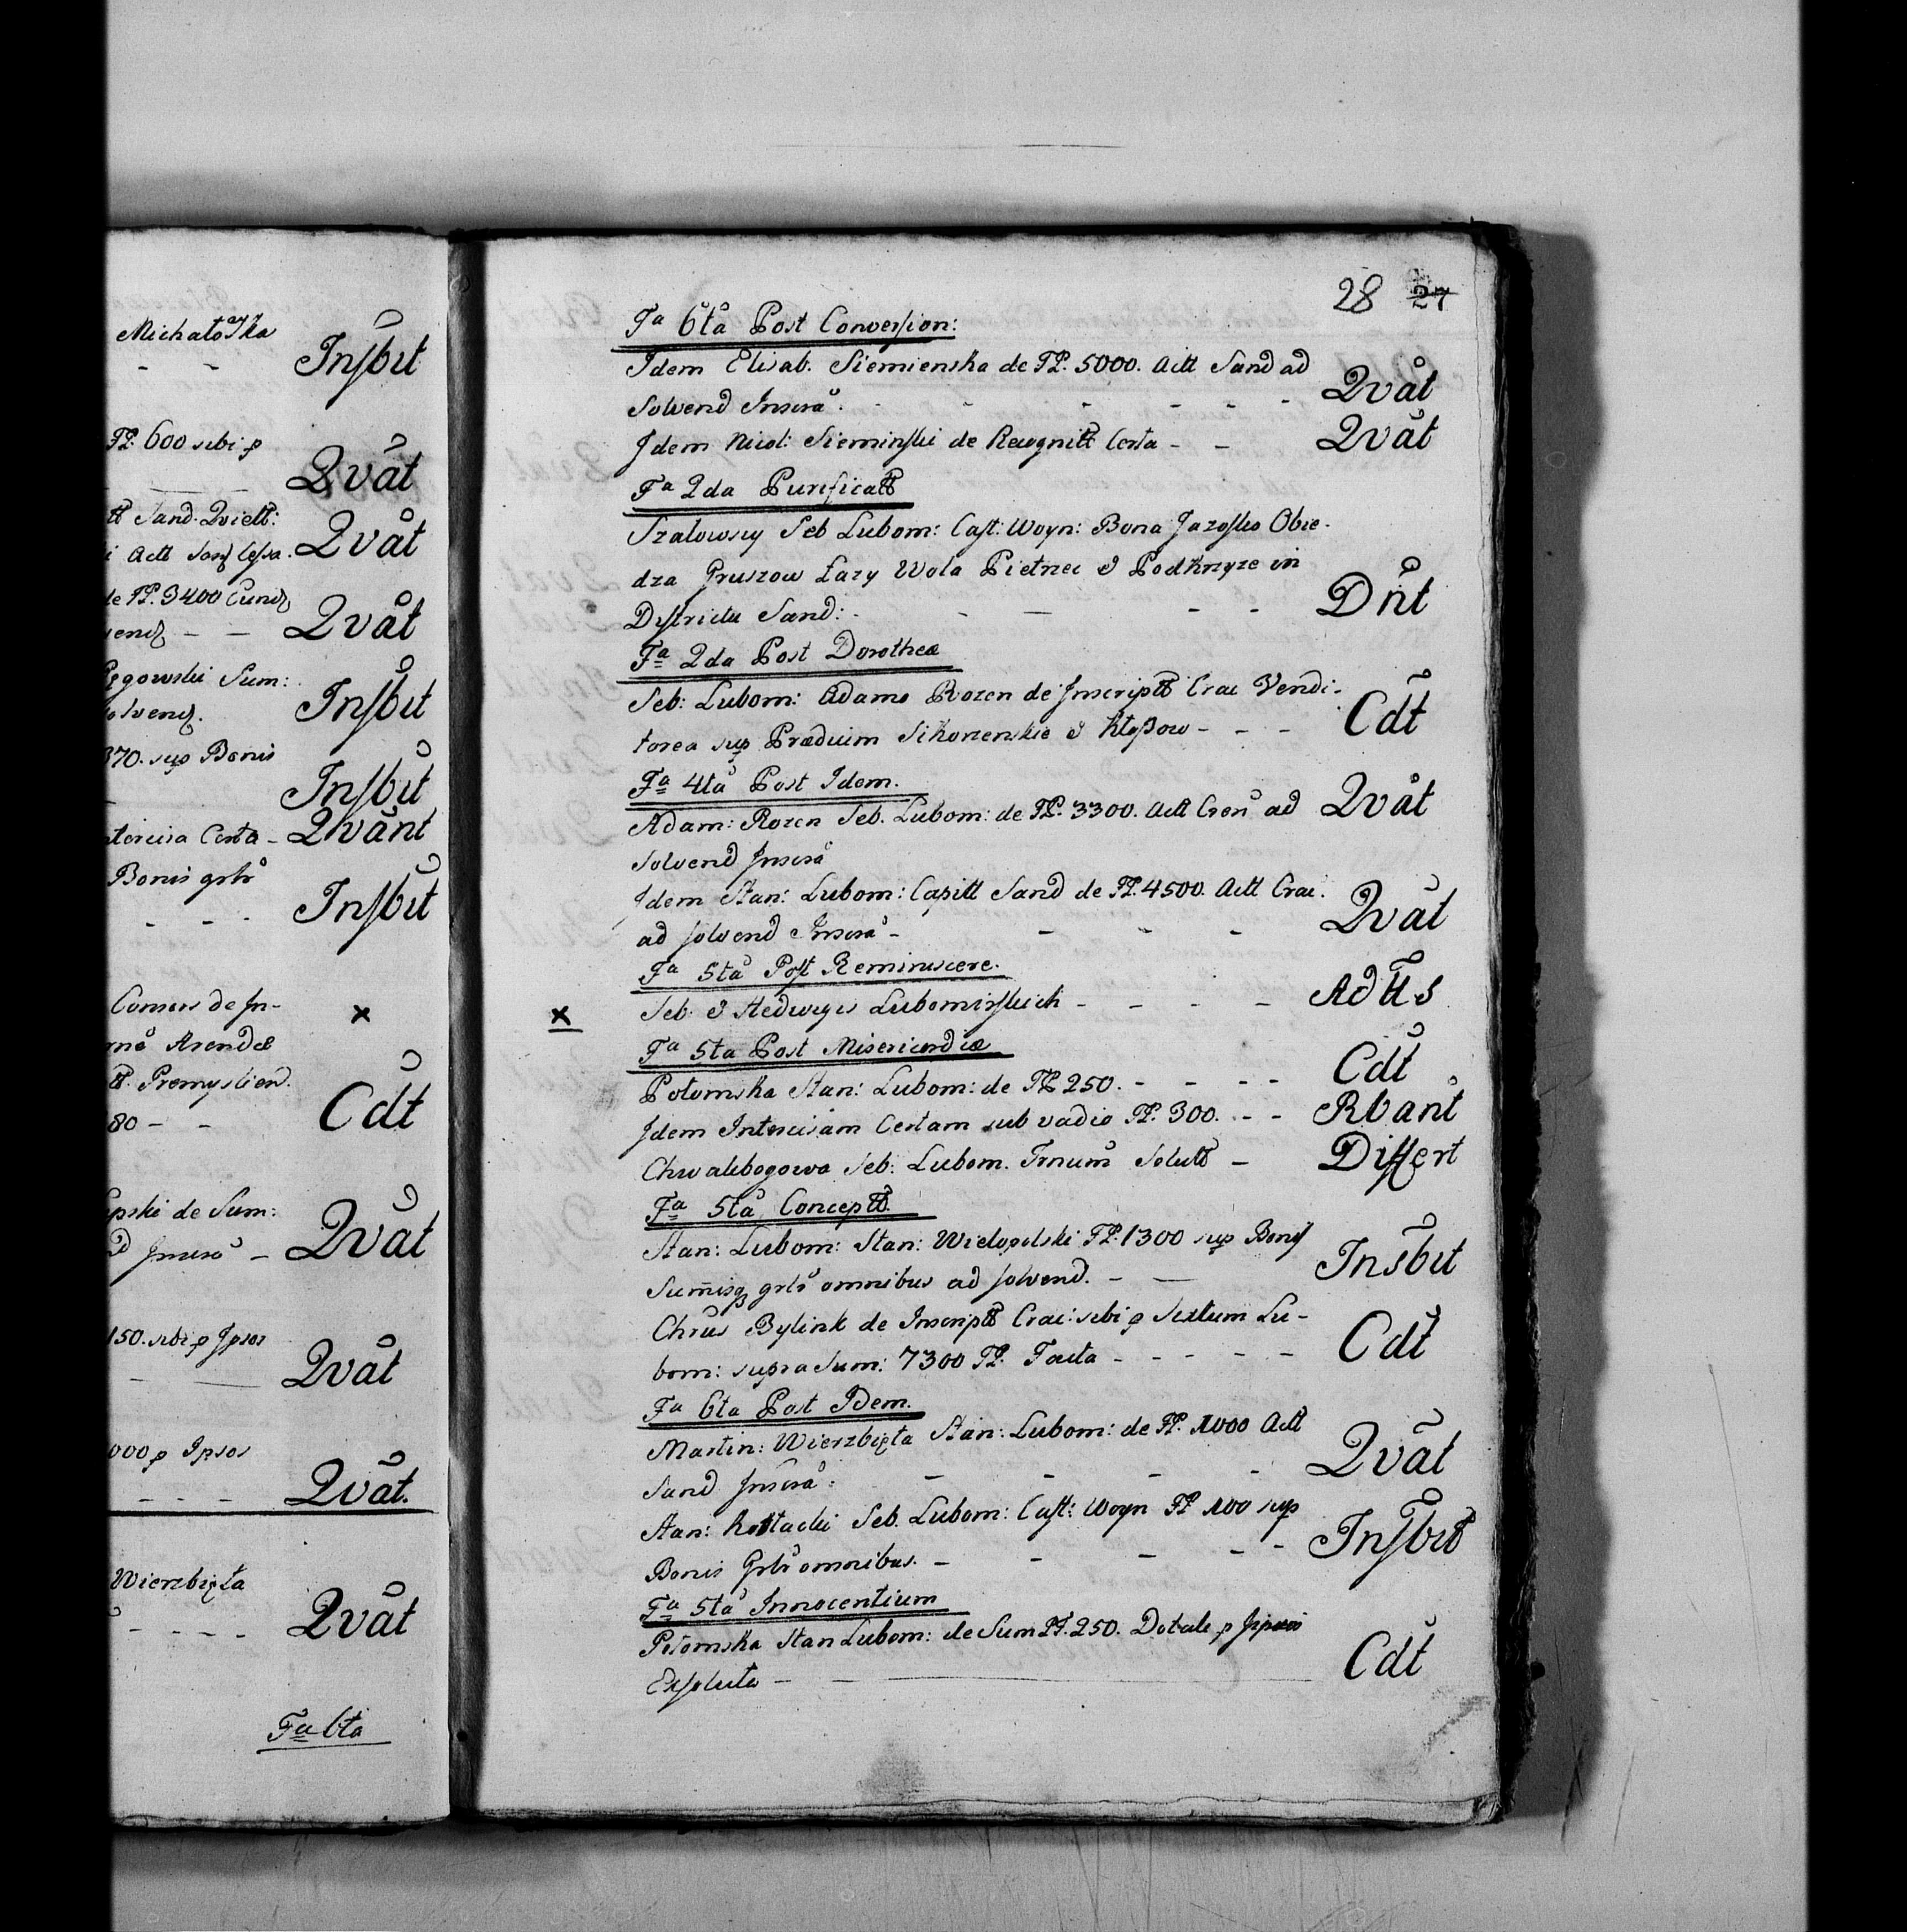 Michałowska
- - Insbit
FP. 600 sibi p
Qvat
tt Sand. Qviett:
i Actt Sand Cessa. Qvat
de FP. 3400 Cund
vend - - Qvat
gowski Sum:
solvend. Insbit
370. sup Bonis
Insbit
ntercisa Certa - Qvant
Bonis grlr
- - - Insbit
Comes de In-
×
Arendæ
tt. Premyslien.
80 - - Cdt
pski de Sum:
Inscra - Qvat
150. sibi p Ipsos
Qvat
000 p Ipsos
- - - Qvat.
Wierzbięta
- - - - Qvat
Fa 6ta
28 27
Fa 6ta Post Conversion:
Idem Elisab. Siemienska de FP. 5000. Actt Sand ad
Solvend Inscra. - - - - - Qvat
Idem Nicol: Sieminski de Recognitt Certa - - Qvat
Fa 2da Purificatt
Szalowsy Seb Lubom: Cast: Woyn: Bona Jazosko Obie-
dza Gruszow Łazy Wola Pietnec & Podkrzyze in
Districtu Sand: - - - - Dnt
Fa 2da Post Dorotheæ
Seb: Lubom: Adamo Rozen de Inscriptt Crac Vendi-
torea sup Prædium Sikorzenskie & Kłapow - - - Cdt
Fa 4ta Post Idem.
Adam: Rozen Seb. Lubom: de FP. 3300. Actt Cren ad Qvat
Solvend Inscra
Idem Stan: Lubom: Capitt Sand de FP. 4500. Actt Crac.
ad solvend Inscra - - - - Qvat
Fa 5ta Post Reminiscere.
× Seb. & Hedwigis Lubomirskich - - - - Adtts
Fa 5ta Post Misericordiæ
Potomska Stan: Lubom: de FP 250. - - - - Cdt
Idem Intercisam Certam sub vadio FP. 300. - - Rbant
Chwalibogowa Seb: Lubom. Trnum Solutt - Differt
Fa 5ta Conceptt.
Stan: Lubom: Stan: Wielopolski FP. 1300 sup Bonis
Sumisq grlr omnibus ad solvend. - - Insbit
Chrus Bylink de Inscriptt Crac: sibi p Sextum Lu-
bom: supra Sum: 7300 FP. Facta - - - - - Cdt
Fa 6ta Post Idem.
Martin: Wierzbięta Stan: Lubom: de FP. 1000 Actt
Sand Inscra: - - - - Qvat
Stan: Rottacki Seb. Lubom: Cast: Woyn FP 100 sup
Bonis Grlr omnibus. - - - - - Insbit
Fa 5ta Innocentium
Potomska Stan Lubom: de Sum FP. 250. Dotale p Ipsum
Exsoluta - - Cdt